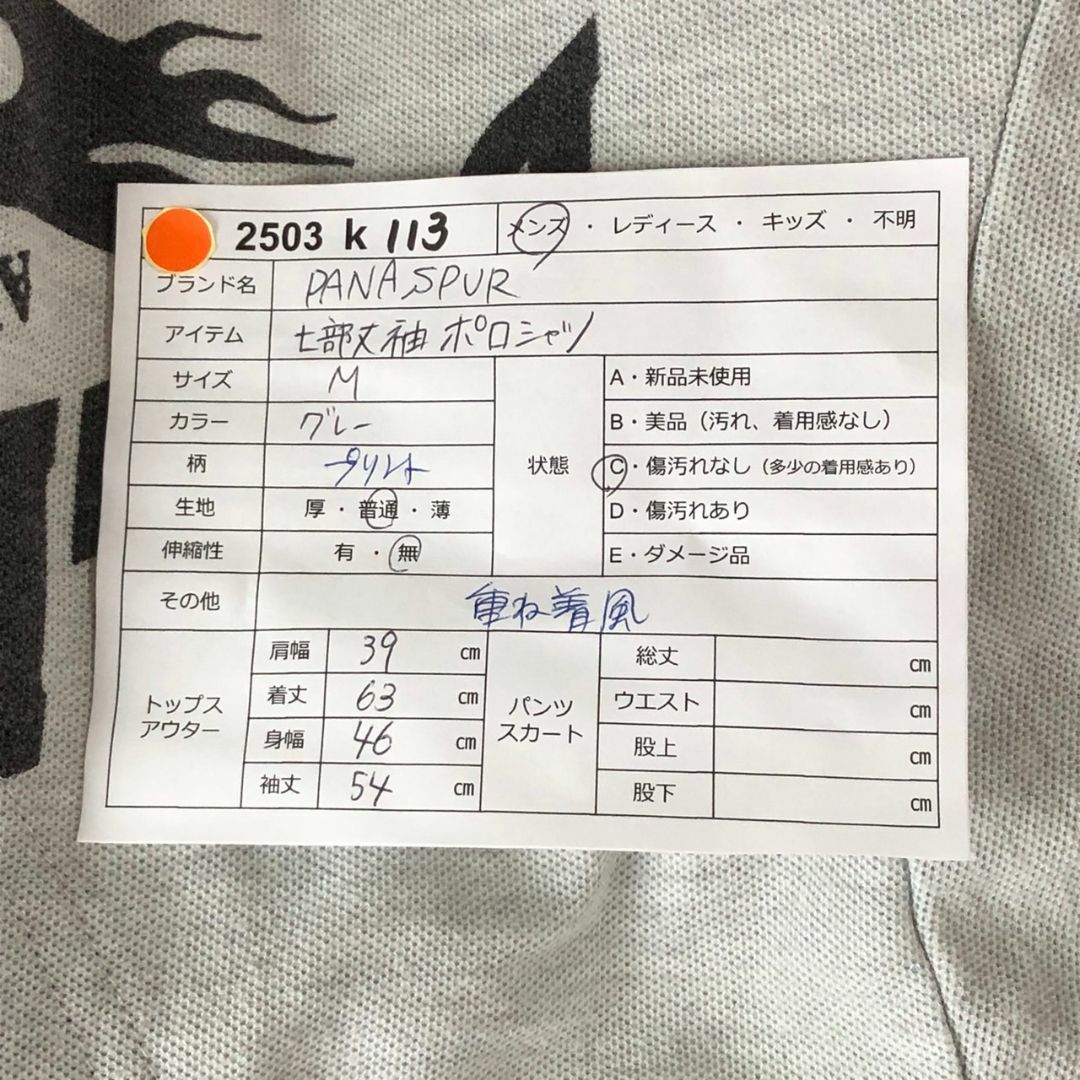 2503 k 113 メンズ ・ レディース ・ キッズ ・ 不明
ブランド名 PANASPUR
アイテム 七部丈袖 ポロシャツ
サイズ M
カラー グレー
柄 プリント
生地 厚 ・ 普通 ・ 薄
伸縮性 有 ・ 無
状態
A・新品未使用
B・美品（汚れ、着用感なし）
C・傷汚れなし（多少の着用感あり）
D・傷汚れあり
E・ダメージ品
その他 重ね着風
トップス
アウター
肩幅 39 cm
着丈 63 cm
身幅 46 cm
袖丈 54 cm
パンツ
スカート
総丈 cm
ウエスト cm
股上 cm
股下 cm